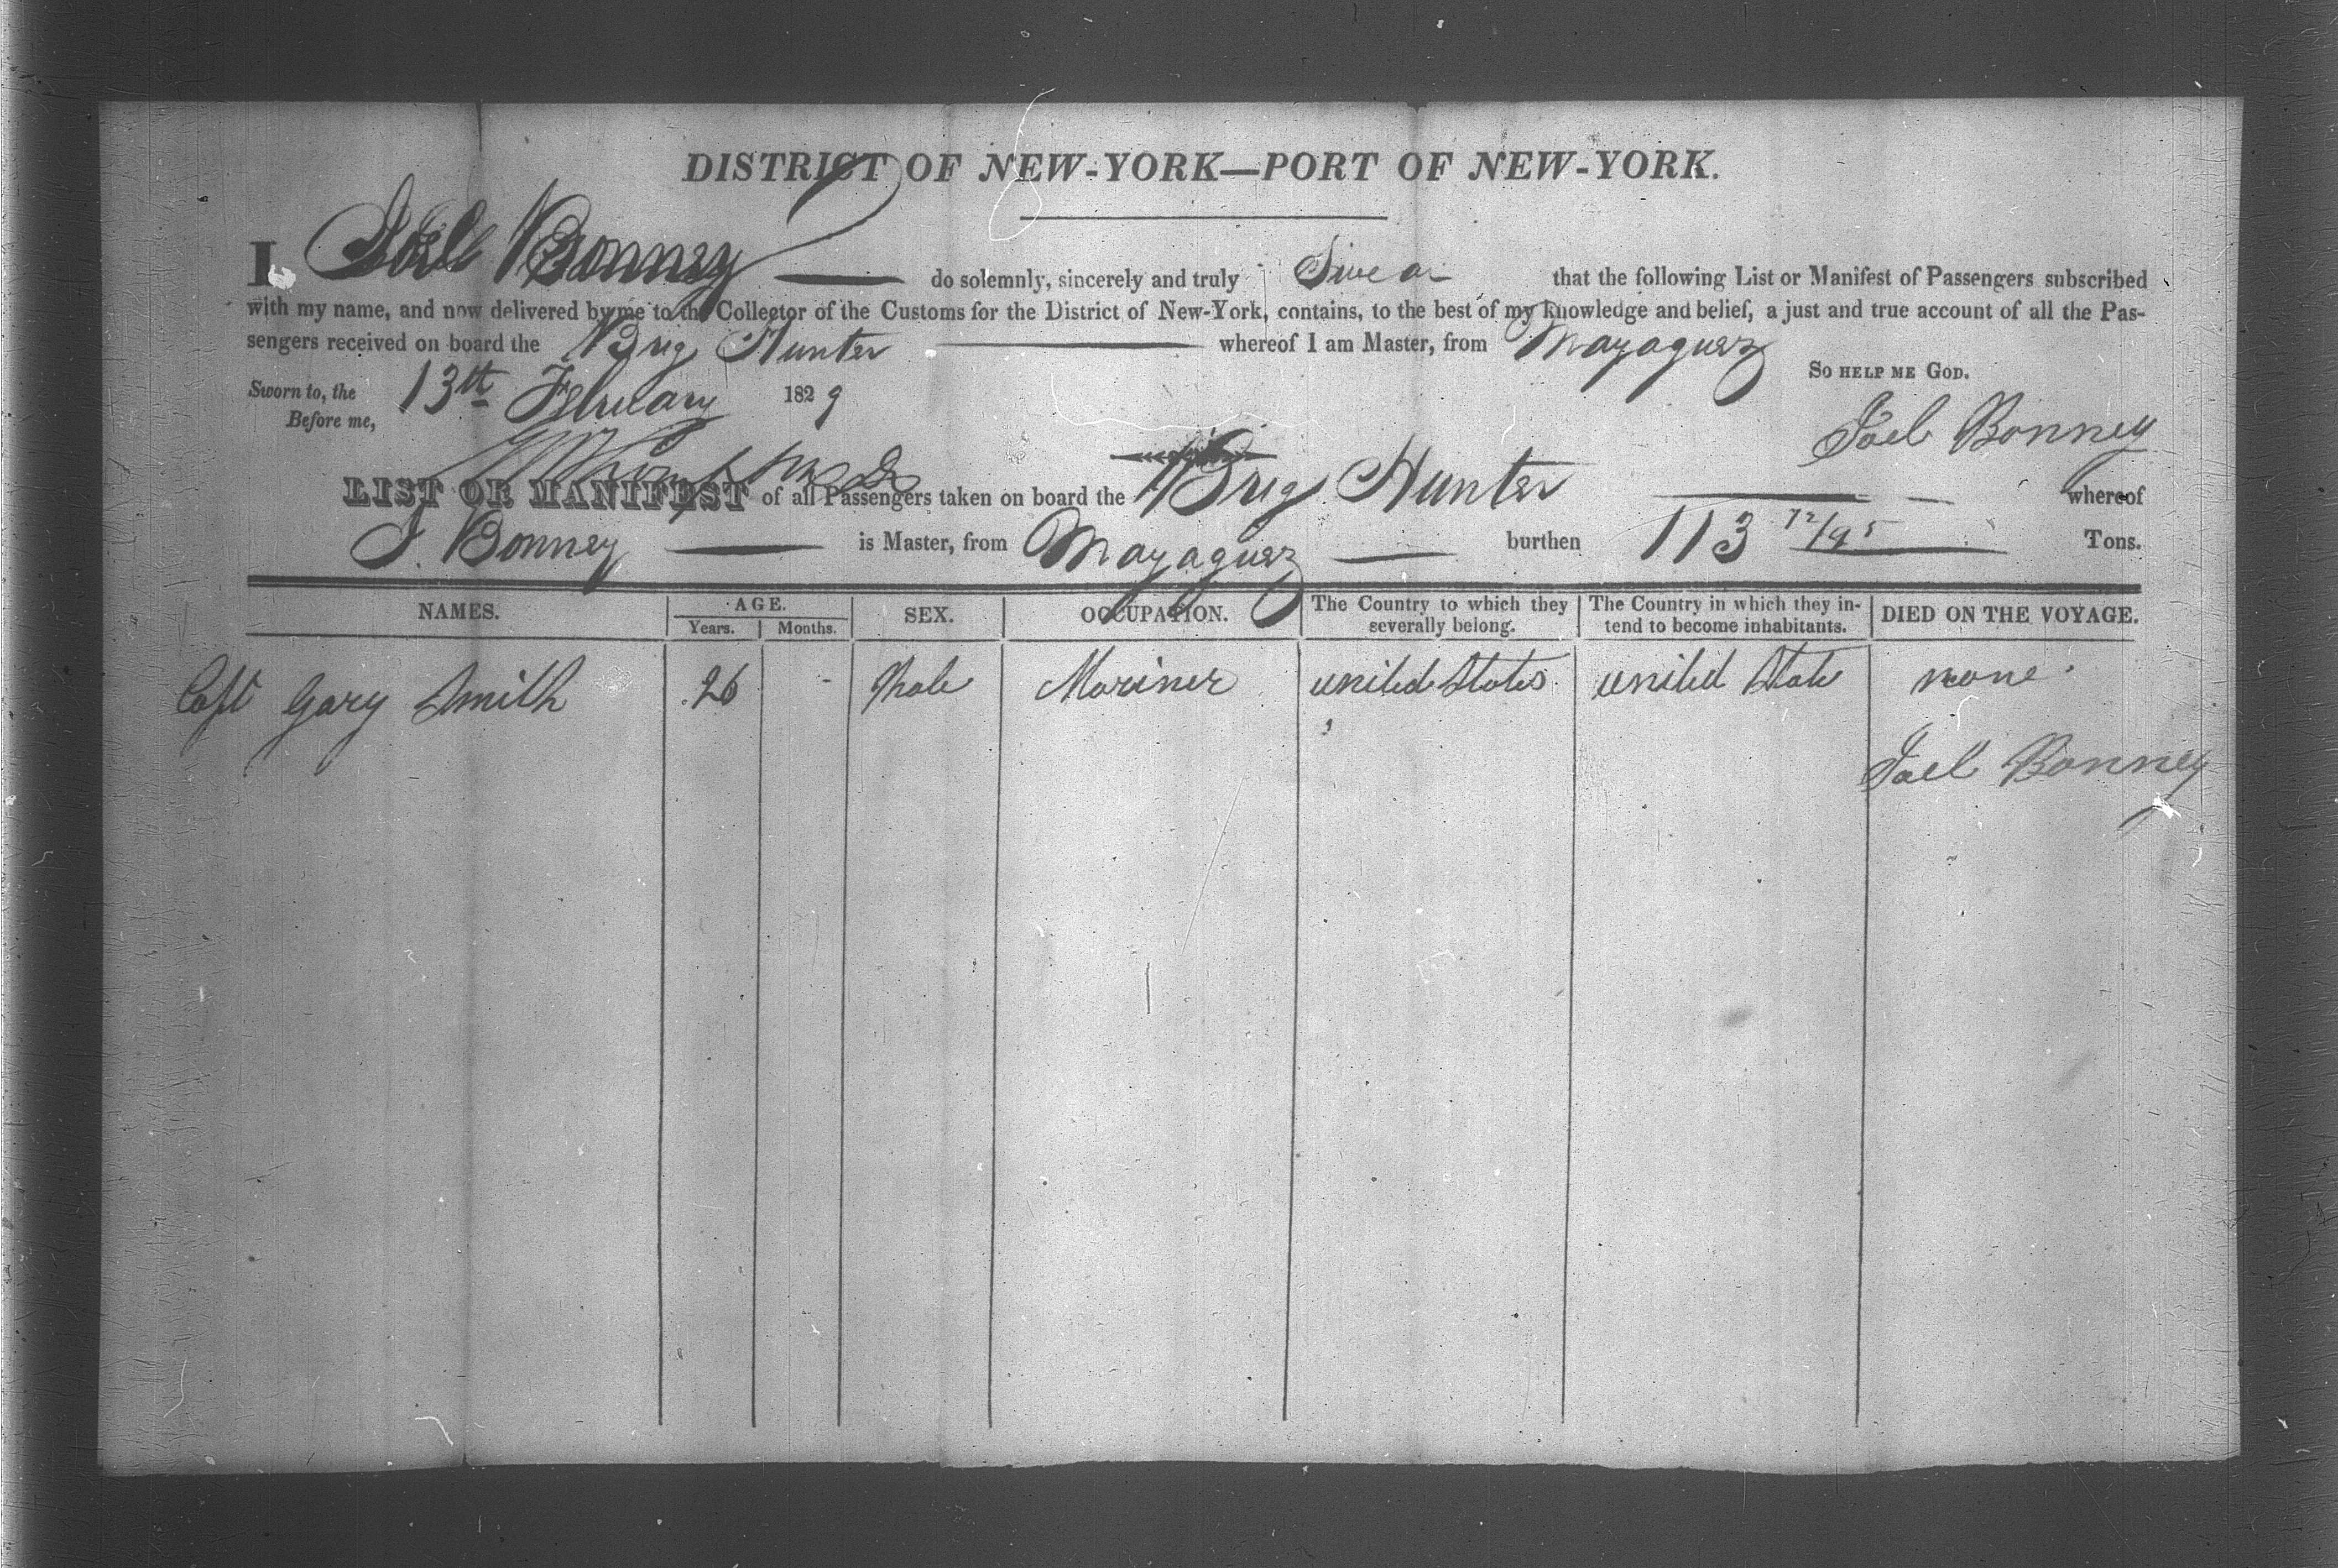 DISTRICT OF NEW-YORK—PORT OF NEW-YORK.
I Joel Bonney do solemnly, sincerely and truly Swear that the following List or Manifest of Passengers subscribed
with my name, and now delivered by me to the Collector of the Customs for the District of New-York, contains, to the best of my knowledge and belief, a just and true account of all the Pas-
sengers received on board the Brig Hunter whereof I am Master, from Mayaguez
So help me God.
Sworn to, the 13th February 1829
Before me,
Joel Bonney
LIST OR MANIFEST of all Passengers taken on board the Brig Hunter whereof
J. Bonney is Master, from Mayaguez burthen 113 72/95 Tons.
NAMES. AGE. Years. Months. SEX. OCCUPATION. The Country to which they severally belong. The Country in which they in-tend to become inhabitants. DIED ON THE VOYAGE.
Capt Gary Smith 26 - Male Mariner united States united State none
Joel Bonney